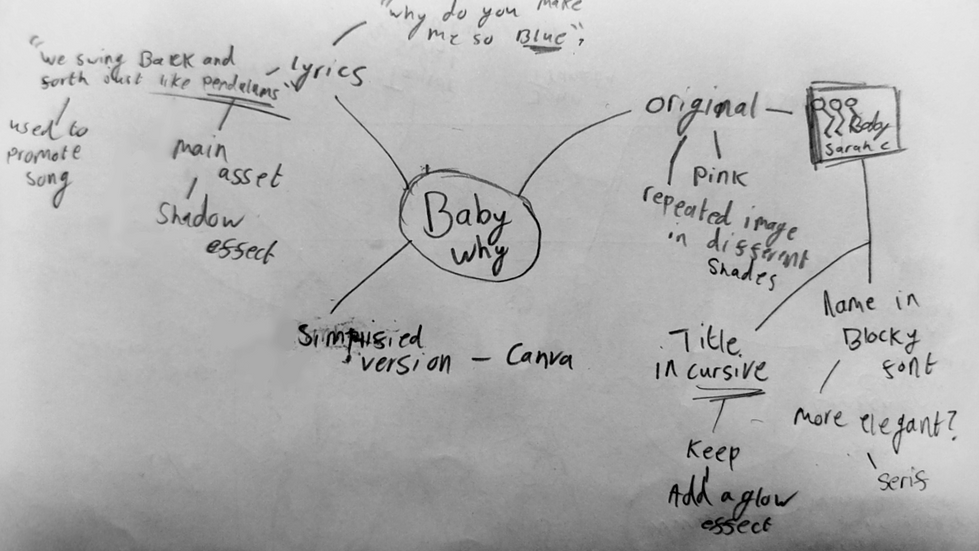 "why do you make
me so Blue"?
"we swing Back and
forth Just like pendalums"
lyrics
used to
promote
song
main
asset
Shadow
effect
Baby
why
Simplified
version – Canva
original
Baby
Sarah C
pink
repeated image
in different
Shades
Title
in cursive
Keep
Add a glow
effect
Name in
Blocky
font
more elegant?
serif